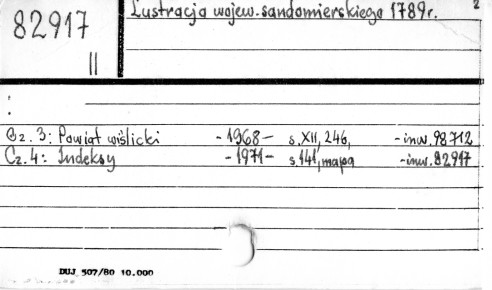 82917
II
Lustracja wojew. sandomierskiego 1789r.
2
:
Cz. 3: Powiat wiślicki - 1968 - s. XII, 246, - inw. 98712
Cz. 4: Indeksy - 1971 - s. 141, mapa - inw. 82917
DUJ 507/80 10.000